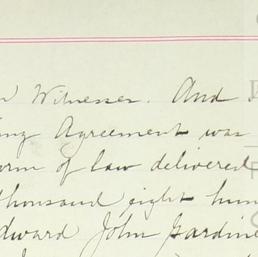 Witnesses. And
Agreement was
of law delivered
thousand eight hun
dward John Gardine